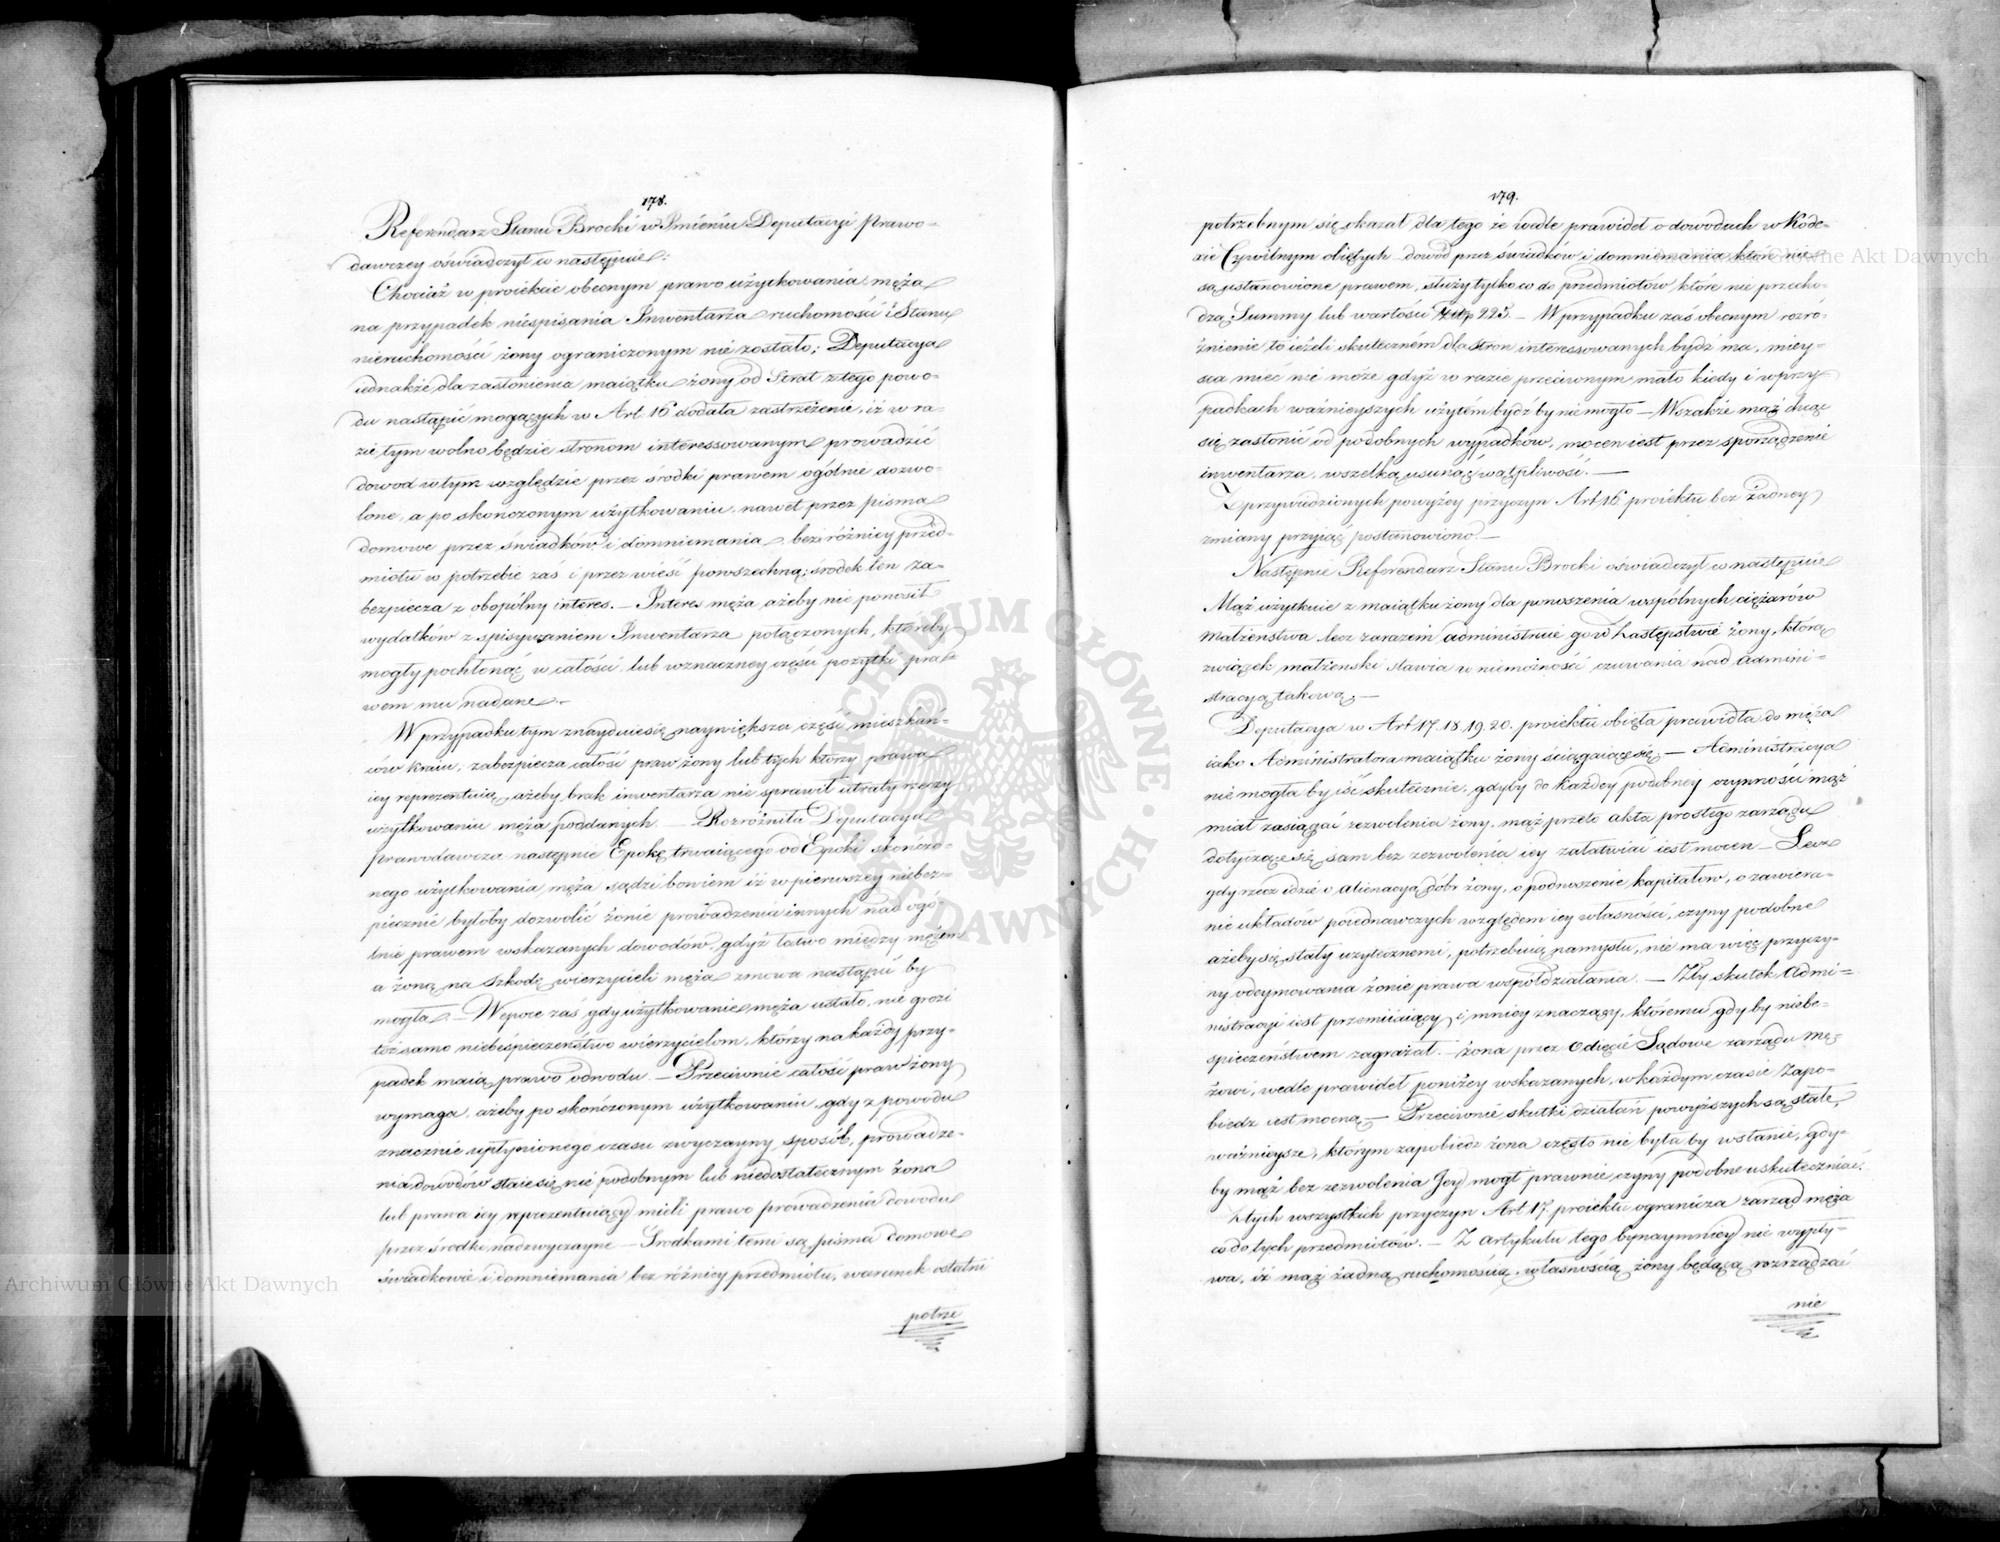 178.
Referendarz Stanu Brocki w Imieniu Deputacyi Prawo-
dawczey oświadczył co następuie:
Chociaż w proiekcie obecnym prawo użytkowania męża
na przypadek niespisania Inwentarza ruchomości i Stanu
nieruchomości żony ograniczonym nie zostało; Deputacya
iednakże dla zasłonienia maiątku żony od Strat z tego powo-
du nastąpić mogących w Art 16 dodała zastrzeżenie, iż w ra-
zie tym wolno będzie stronom interessowanym prowadzić
dowod w tym względzie przez środki prawem ogólnie dozwo-
lone, a po skończonym użytkowaniu, nawet przez pisma
domowe przez świadków i domniemania, bez różnicy przed-
miotu w potrzebie zaś i przez wieść powszechną; srodek ten za-
bezpiecza z obopólny interes. — Interes męża, ażeby nie ponosił
wydatków z spisywaniem Inwentarza połączonych, któreby
mogły pochłonąć w całości, lub w znaczney części pożytki pra-
wem mu nadane. —
W przypadku tym znayduie się naywiększa część mieszkań-
ców kraiu, zabezpiecza całość praw żony lub tych którzy prawa
iey reprezentuią, ażeby brak inwentarza nie sprawił utraty rzeczy
użytkowaniu męża poddanych. — Rozróżniła Deputacya
Prawodawcza następnie Epokę trwaiącego od Epoki skończo-
nego użytkowania męża sądzi bowiem iż w pierwszey niebez-
piecznie byłoby dozwolić żonie prowadzenia innych nad ogó-
lnie prawem wskazanych dowodów, gdyż łatwo między mężem
a żoną na szkodę wierzycieli męża zmowa nastąpić by
mogła. — W epoce zaś gdy użytkowanie męża ustało, nie grozi
toż samo niebespieczeństwo wierzycielom, którzy na każdy przy-
padek maią prawo odwodu. — Przeciwnie całość praw żony
wymaga, ażeby po skończonym użytkowaniu, gdy z powodu
znacznie upłynionego czasu zwyczayny sposób, prowadze-
nia dowodów staie się nie podobnym lub niedostatecznym żona
lub prawa iey reprezentuiący mieli prawo prowadzenia dowodu
przez środki nadzwyczayne — Środkami temi są pisma domowe
świadkowie i domniemania bez różnicy przedmiotu, warunek ostatni
potrze
179.
potrzebnym się okazał dla tego że wedle prawideł o dowodach w Kode-
xie Cywilnym obiętych dowód przez świadków i domniemania które nie
są ustanowione prawem, służy tylko co do przedmiotów które nie przecho-
dzą Summy lub wartości Złp 225. — W przypadku zaś obecnym rozró-
żnienie to ieżeli skuteczném dla stron interessowanych bydź ma, miey-
sca mieć nie może gdyż w razie przeciwnym mało kiedy i w przy-
padkach ważnieyszych użytém bydź by nie mogło — Wszakże mąż chcąc
się zasłonić od podobnych wypadków, mocen iest przez sporządzenie
inwentarza, wszelką usunąć wątpliwość. —
Z przywiedzionych powyżey przyczyn Art 16 proiektu bez żadney
zmiany przyiąć postanowiono. —
Następnie Referendarz Stanu Brocki oświadczył co następuie
Mąż użytkuie z maiątku żony dla ponoszenia wspólnych ciężarów
Małżeństwa lecz zarazem administruie go w zastępstwie żony, którą
związek małżenski stawia w niemożności czuwania nad admini-
stracyą takową. —
Deputacya w Art 17. 18. 19. 20. proiektu obięła prawidła do męża
iako Administratora maiątku żony ściągaiące się — Administracya
nie mogła by iść skutecznie, gdyby do każdey podobney czynności mąż
miał zasiągać zezwolenia żony, mąż przeto akta prostego zarządu
dotyczące się sam bez zezwolenia iey załatwiać iest mocen — Lecz
gdy rzecz idzie o alienacyą dóbr żony, o podnoszenie kapitałów, o zawiera-
nie układów poiednawczych względem iey własności, czyny podobne
ażeby się stały użytecznemi, potrzebuią namysłu, nie ma więc przyczy-
ny odeymowania żonie prawa współdziałania. — Zły skutek admi-
nistracyi iest przemiiaiący i mniey znaczący, któremu gdyby niebe-
spieczeństwem zagrażał. — żona przez odięcie Sądowe zarządu mę-
żowi, wedle prawideł poniżey wskazanych, w każdym czasie zapo-
biedz iest mocną — Przeciwnie skutki działań powyższych są stałe,
ważnieysze, którym zapobiedz żona często nie była by w stanie, gdy-
by mąż bez zezwolenia Jey mógł prawnie czyny podobne uskuteczniać.
Z tych wszystkich przyczyn Art 17. proiektu ogranicza zarząd męża
co do tych przedmiotów. — Z artykułu tego bynaymniey nie wypły-
wa, iż mąż żadną ruchomością własnością żony będącą rozrządzać
nie